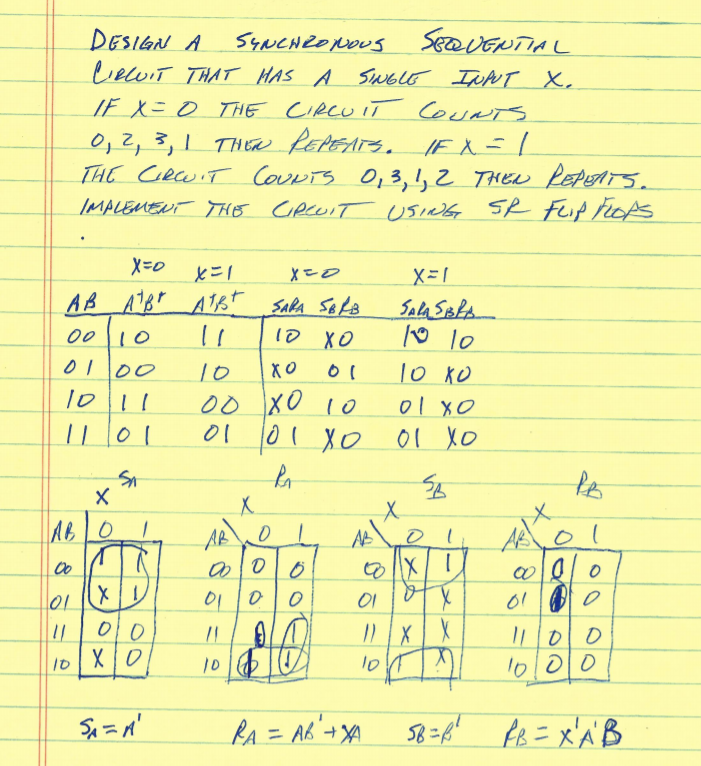 DESIGN A SYNCHRONOUS SEQUENTIAL
CIRCUIT THAT HAS A SINGLE INPUT X.
IF X = 0 THE CIRCUIT COUNTS
0, 2, 3, 1 THEN REPEATS. IF X = 1
THE CIRCUIT COUNTS 0, 3, 1, 2 THEN REPEATS.
IMPLEMENT THE CIRCUIT USING SR FLIP FLOPS
.
X=0 X=1 X=0 X=1
AB A⁺B⁺ A⁺B⁺ SARA SBRB SARA SBRB
00 10 11 10 X0 10 10
01 00 10 X0 01 10 X0
10 11 00 X0 10 01 X0
11 01 01 01 X0 01 X0
SA RA SB RB
X X X X
AB 0 1 AB 0 1 AB 0 1 AB 0 1
00 1 1 00 0 0 00 X 1 00 0 0
01 X 1 01 0 0 01 0 X 01 1 0
11 0 0 11 0 1 11 X X 11 0 0
10 X 0 10 0 1 10 1 X 10 0 0
SA = A' RA = AB' + XA SB = B' RB = X'A'B